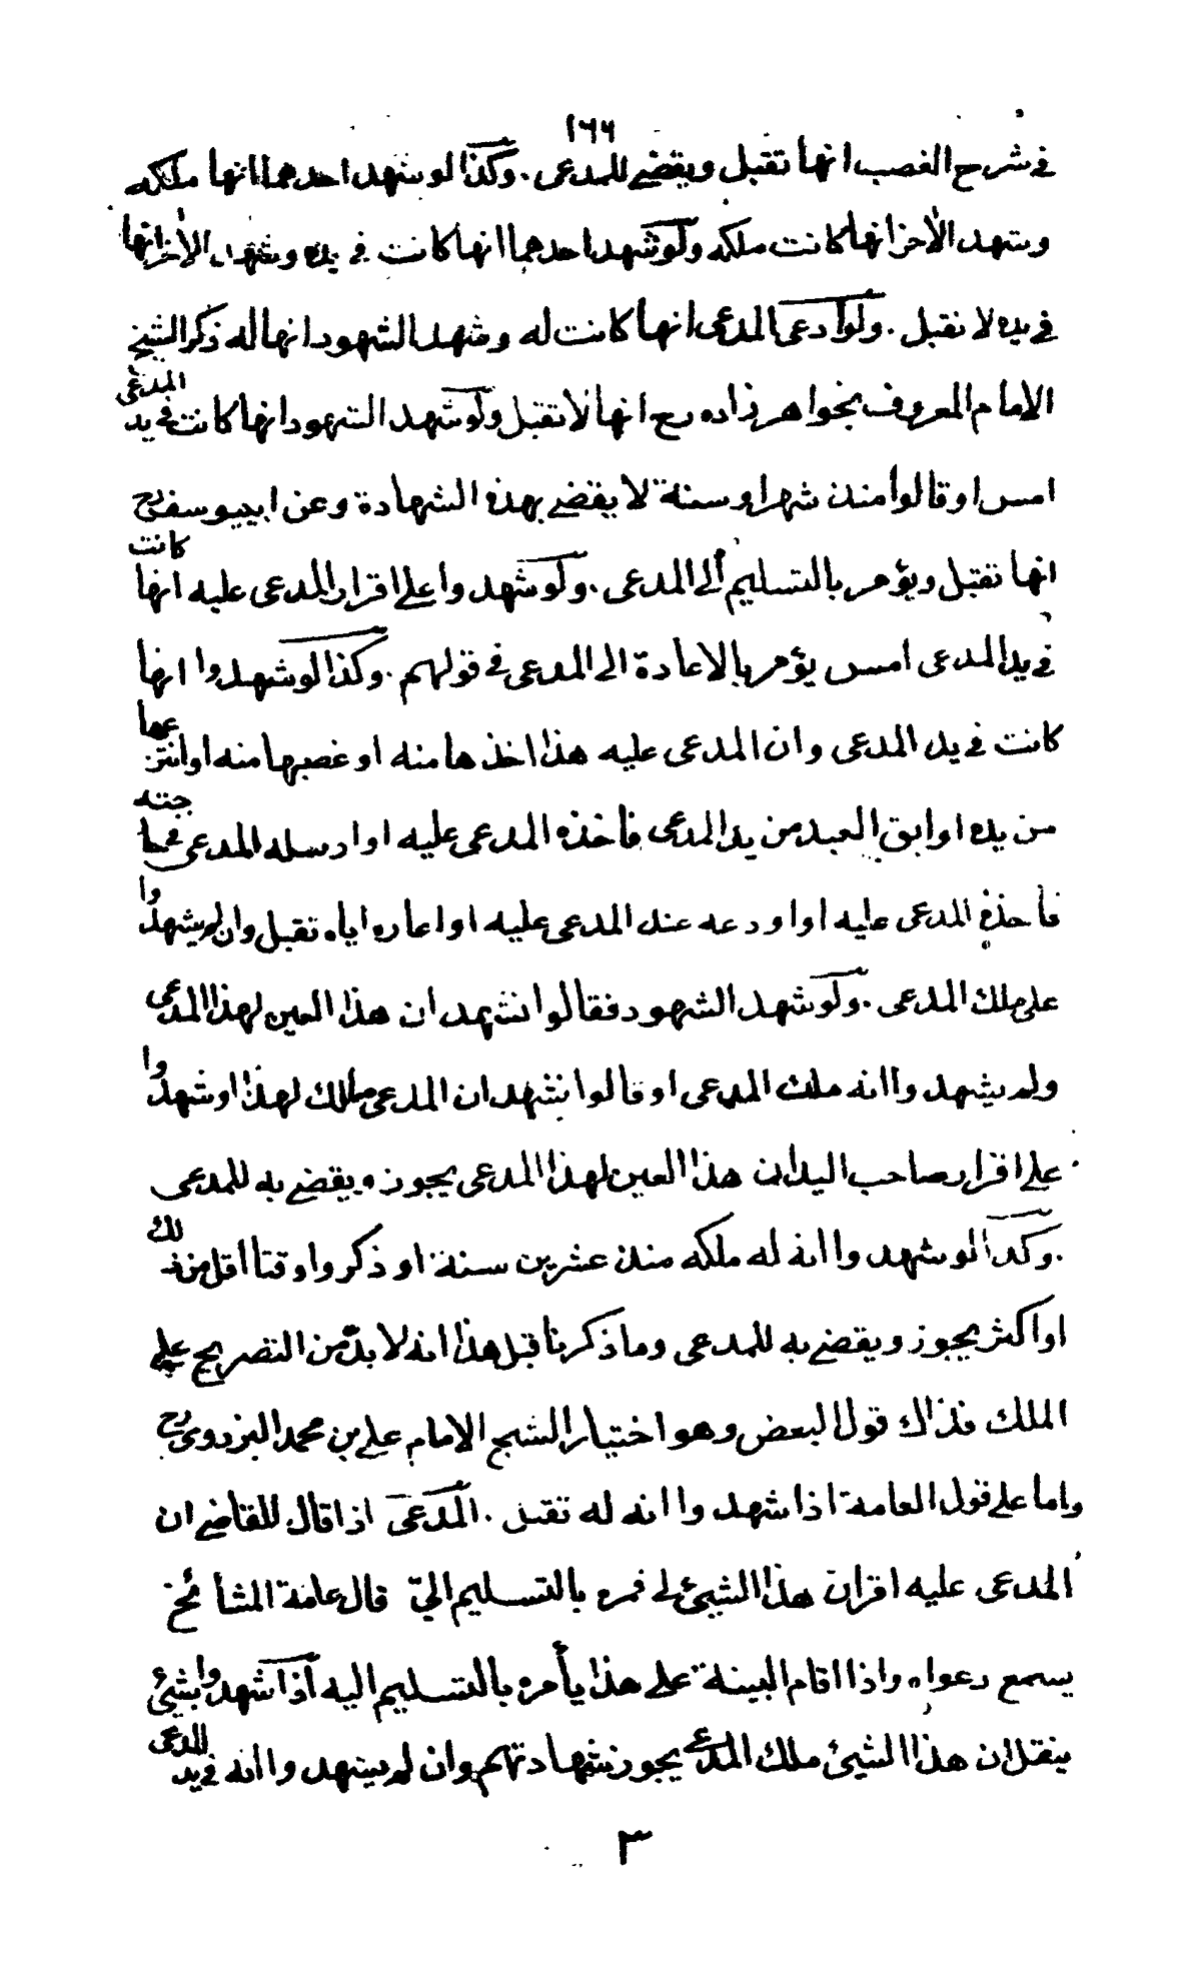 ١٦٦
في شرح الغصب انها تقبل ويقضى للمدعى . وكذا لو شهد احدهما انها ملكه
وشهد الآخر انها كانت ملكه ولو شهد احدهما انها كانت في يده وشهد الآخر انها
في يده لا تقبل . ولو ادعى المدعى انها كانت له وشهد الشهود انها له ذكر الشيخ
الامام المعروف بخواهر زاده رح انها لا تقبل ولو شهد الشهود انها كانت في يد المدعى
امس او قالوا منذ شهر او سنة لا يقضى بهذه الشهادة وعن ابي يوسف رح
انها تقبل ويؤمر بالتسليم الى المدعى . ولو شهدوا على اقرار المدعى عليه انها كانت
في يد المدعى امس يؤمر بالاعادة الى المدعى في قولهم . وكذا لو شهدوا انها
كانت في يد المدعى وان المدعى عليه هذا اخذها منه او غصبها منه او انتزعها
من يده او ابق العبد من يد المدعى فأخذه المدعى عليه او ارسله المدعى في حاجته
فأخذه المدعى عليه او اودعه عند المدعى عليه او اعاره اياه تقبل وان لم يشهدوا
على ملك المدعى . ولو شهد الشهود فقالوا نشهد ان هذا العين لهذا المدعى
ولم يشهدوا انه ملك المدعى او قالوا نشهد ان المدعى ملك لهذا او شهدوا
على اقرار صاحب اليد ان هذا العين لهذا المدعى يجوز ويقضى به للمدعى
. وكذا لو شهدوا انه له ملكه منذ عشرين سنة او ذكروا وقتا اقل من ذلك
او اكثر يجوز ويقضى به للمدعى وما ذكرنا قبل هذا انه لا بدّ من التصريح على
الملك فذاك قول البعض وهو اختيار الشيخ الامام علي بن محمد البزدوى رح
واما على قول العامة اذا شهدوا انه له تقبل . المدعى اذا قال للقاضي ان
المدعى عليه اقر ان هذا الشيئ لى فمره بالتسليم اليّ قال عامة المشأئخ
يسمع دعواه واذا اقام البينة على هذا يأمره بالتسليم اليه اذا شهدوا بشيئ
ينقل ان هذا الشيئ ملك المدعى يجوز شهادتهم وان لم يشهدوا انه في يد المدعى
٣